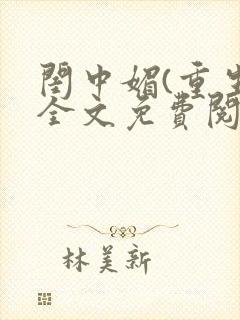 閨中媚(重生
全文免費閱
林美新